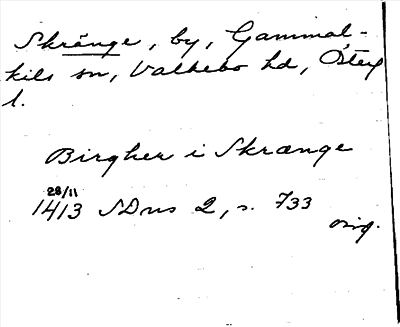 Skrānge, by, Gammal-
kils sn, Valkebo hd, Österg
l.
Birgher i Skrænge
28/11
1413 SDns 2, s. 733
orig.